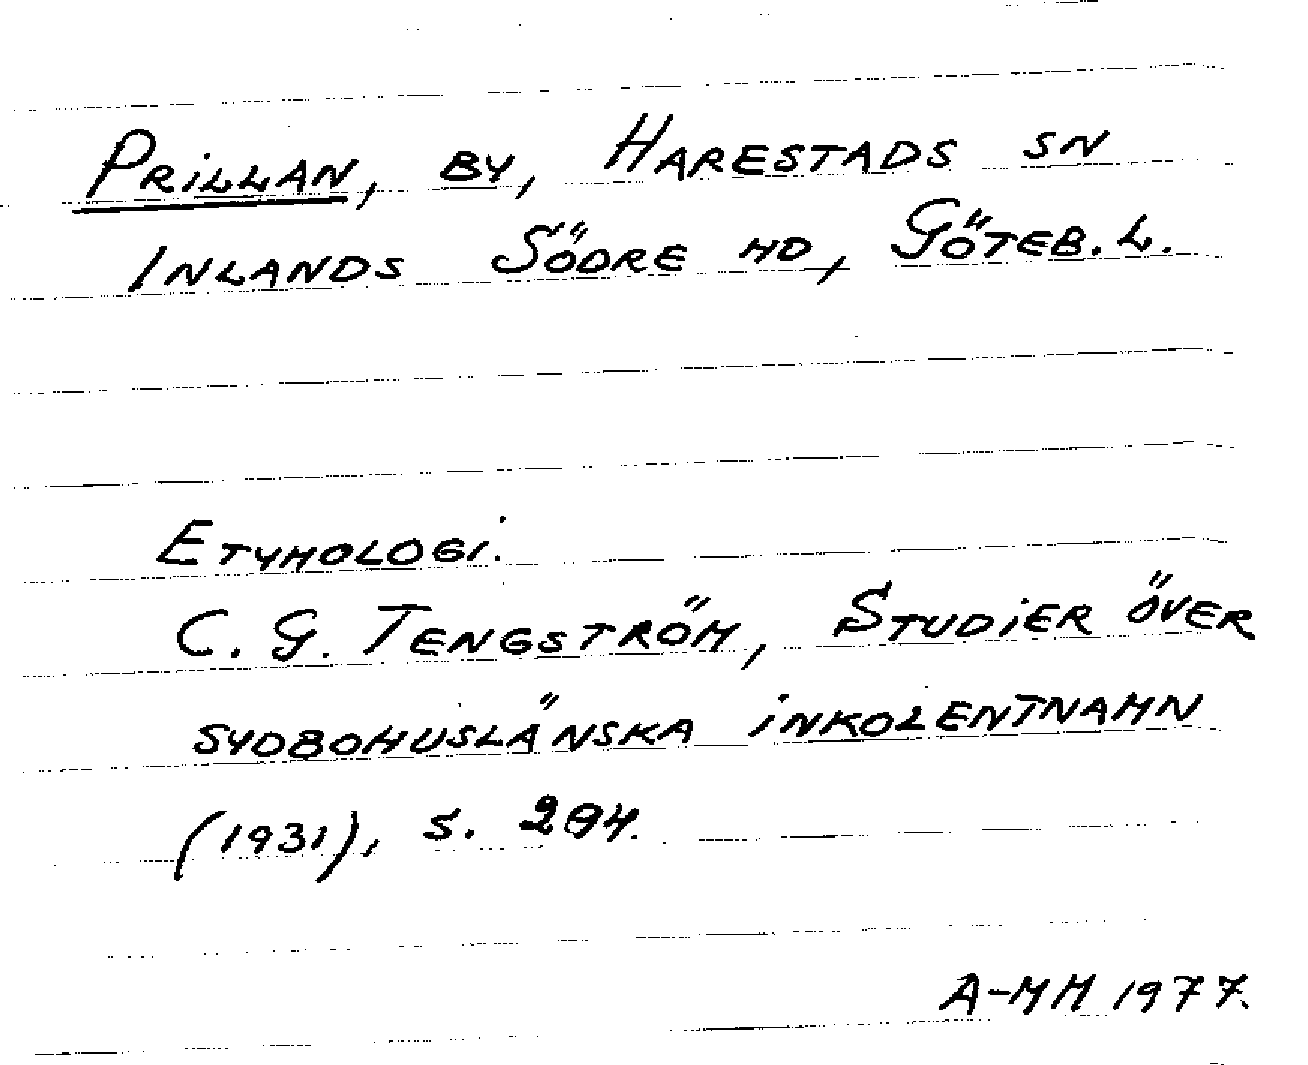 Prillan, by, Harestads sn
Inlands Södre hd, Göteb. l.
Etymologi.
C. G. Tengström, Studier över
sydbohuslänska inkolentnamn
(1931), s. 294.
A-MM 1977.